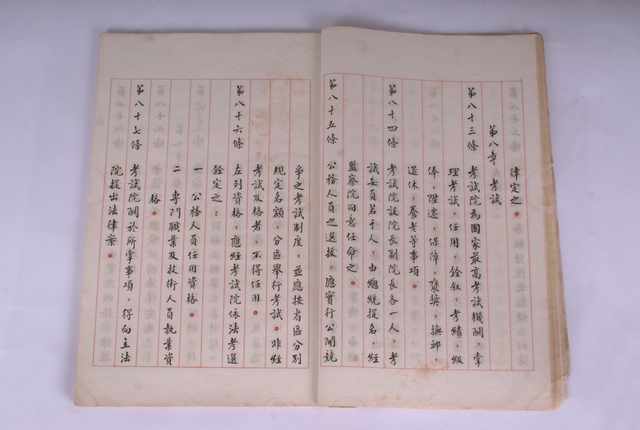 律定之。
第八章　考試
第八十三條　考試院為國家最高考試機關，掌
理考試，任用，銓敘，考績，級
俸，陞遷，保障，褒獎，撫卹，
退休，養老等事項。
第八十四條　考試院設院長副院長各一人，考
試委員若干人，由總統提名，經
監察院同意任命之。
第八十五條　公務人員之選拔，應實行公開競
爭之考試制度，並應按省區分別
規定名額，分區舉行考試。非經
考試及格者，不得任用。
第八十六條　左列資格，應經考試院依法考選
銓定之：
一　公務人員任用資格。
二　專門職業及技術人員執業資
格。
第八十七條　考試院關於所掌事項，得向立法
院提出法律案。